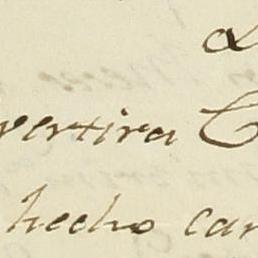 vertira C
hecho car